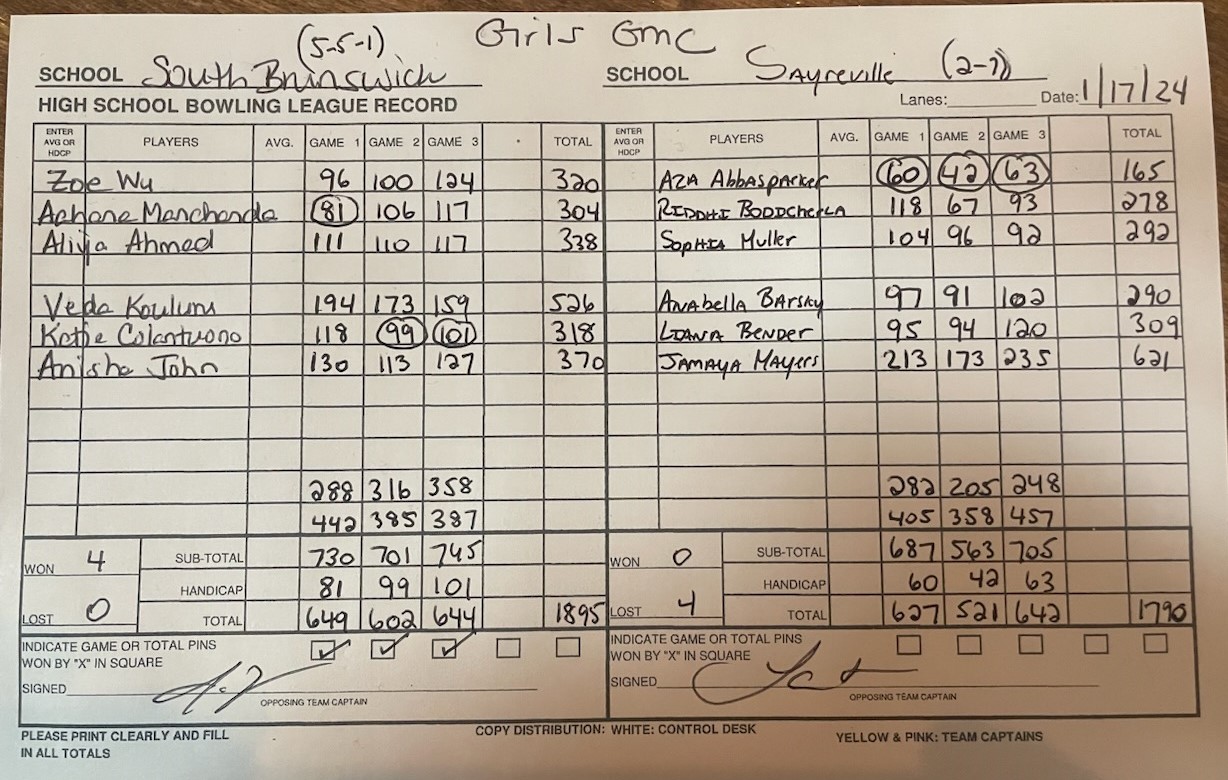 (5-5-1) Girls GMC
SCHOOL South Brunswick SCHOOL Sayreville (2-7)
HIGH SCHOOL BOWLING LEAGUE RECORD Lanes: Date: 1/17/24
ENTER AVG OR HDCP PLAYERS AVG. GAME 1 GAME 2 GAME 3 TOTAL ENTER AVG OR HDCP PLAYERS AVG. GAME 1 GAME 2 GAME 3 TOTAL
Zoe Wu 96 100 124 320 AZA Abbasparker 60 42 63 165
Manchanda 81 106 117 304 RIDDHI 118 67 93 278
Aliya Ahmed 111 110 117 338 Sophia Muller 104 96 92 292
Veda 194 173 159 526 Anabella Barsky 97 91 102 290
Katie Colantuono 118 99 101 318 LIANA Bender 95 94 120 309
Anisha John 130 113 127 370 JAMAYA MAYERS 213 173 235 621
288 316 358 282 205 248
442 385 387 405 358 457
WON 4 SUB-TOTAL 730 701 745 WON 0 SUB-TOTAL 687 563 705
HANDICAP 81 99 101 HANDICAP 60 42 63
LOST 0 TOTAL 649 602 644 1895 LOST 4 TOTAL 627 521 642 1790
INDICATE GAME OR TOTAL PINS INDICATE GAME OR TOTAL PINS
WON BY "X" IN SQUARE WON BY "X" IN SQUARE
SIGNED SIGNED
OPPOSING TEAM CAPTAIN OPPOSING TEAM CAPTAIN
PLEASE PRINT CLEARLY AND FILL COPY DISTRIBUTION: WHITE: CONTROL DESK YELLOW & PINK: TEAM CAPTAINS
IN ALL TOTALS